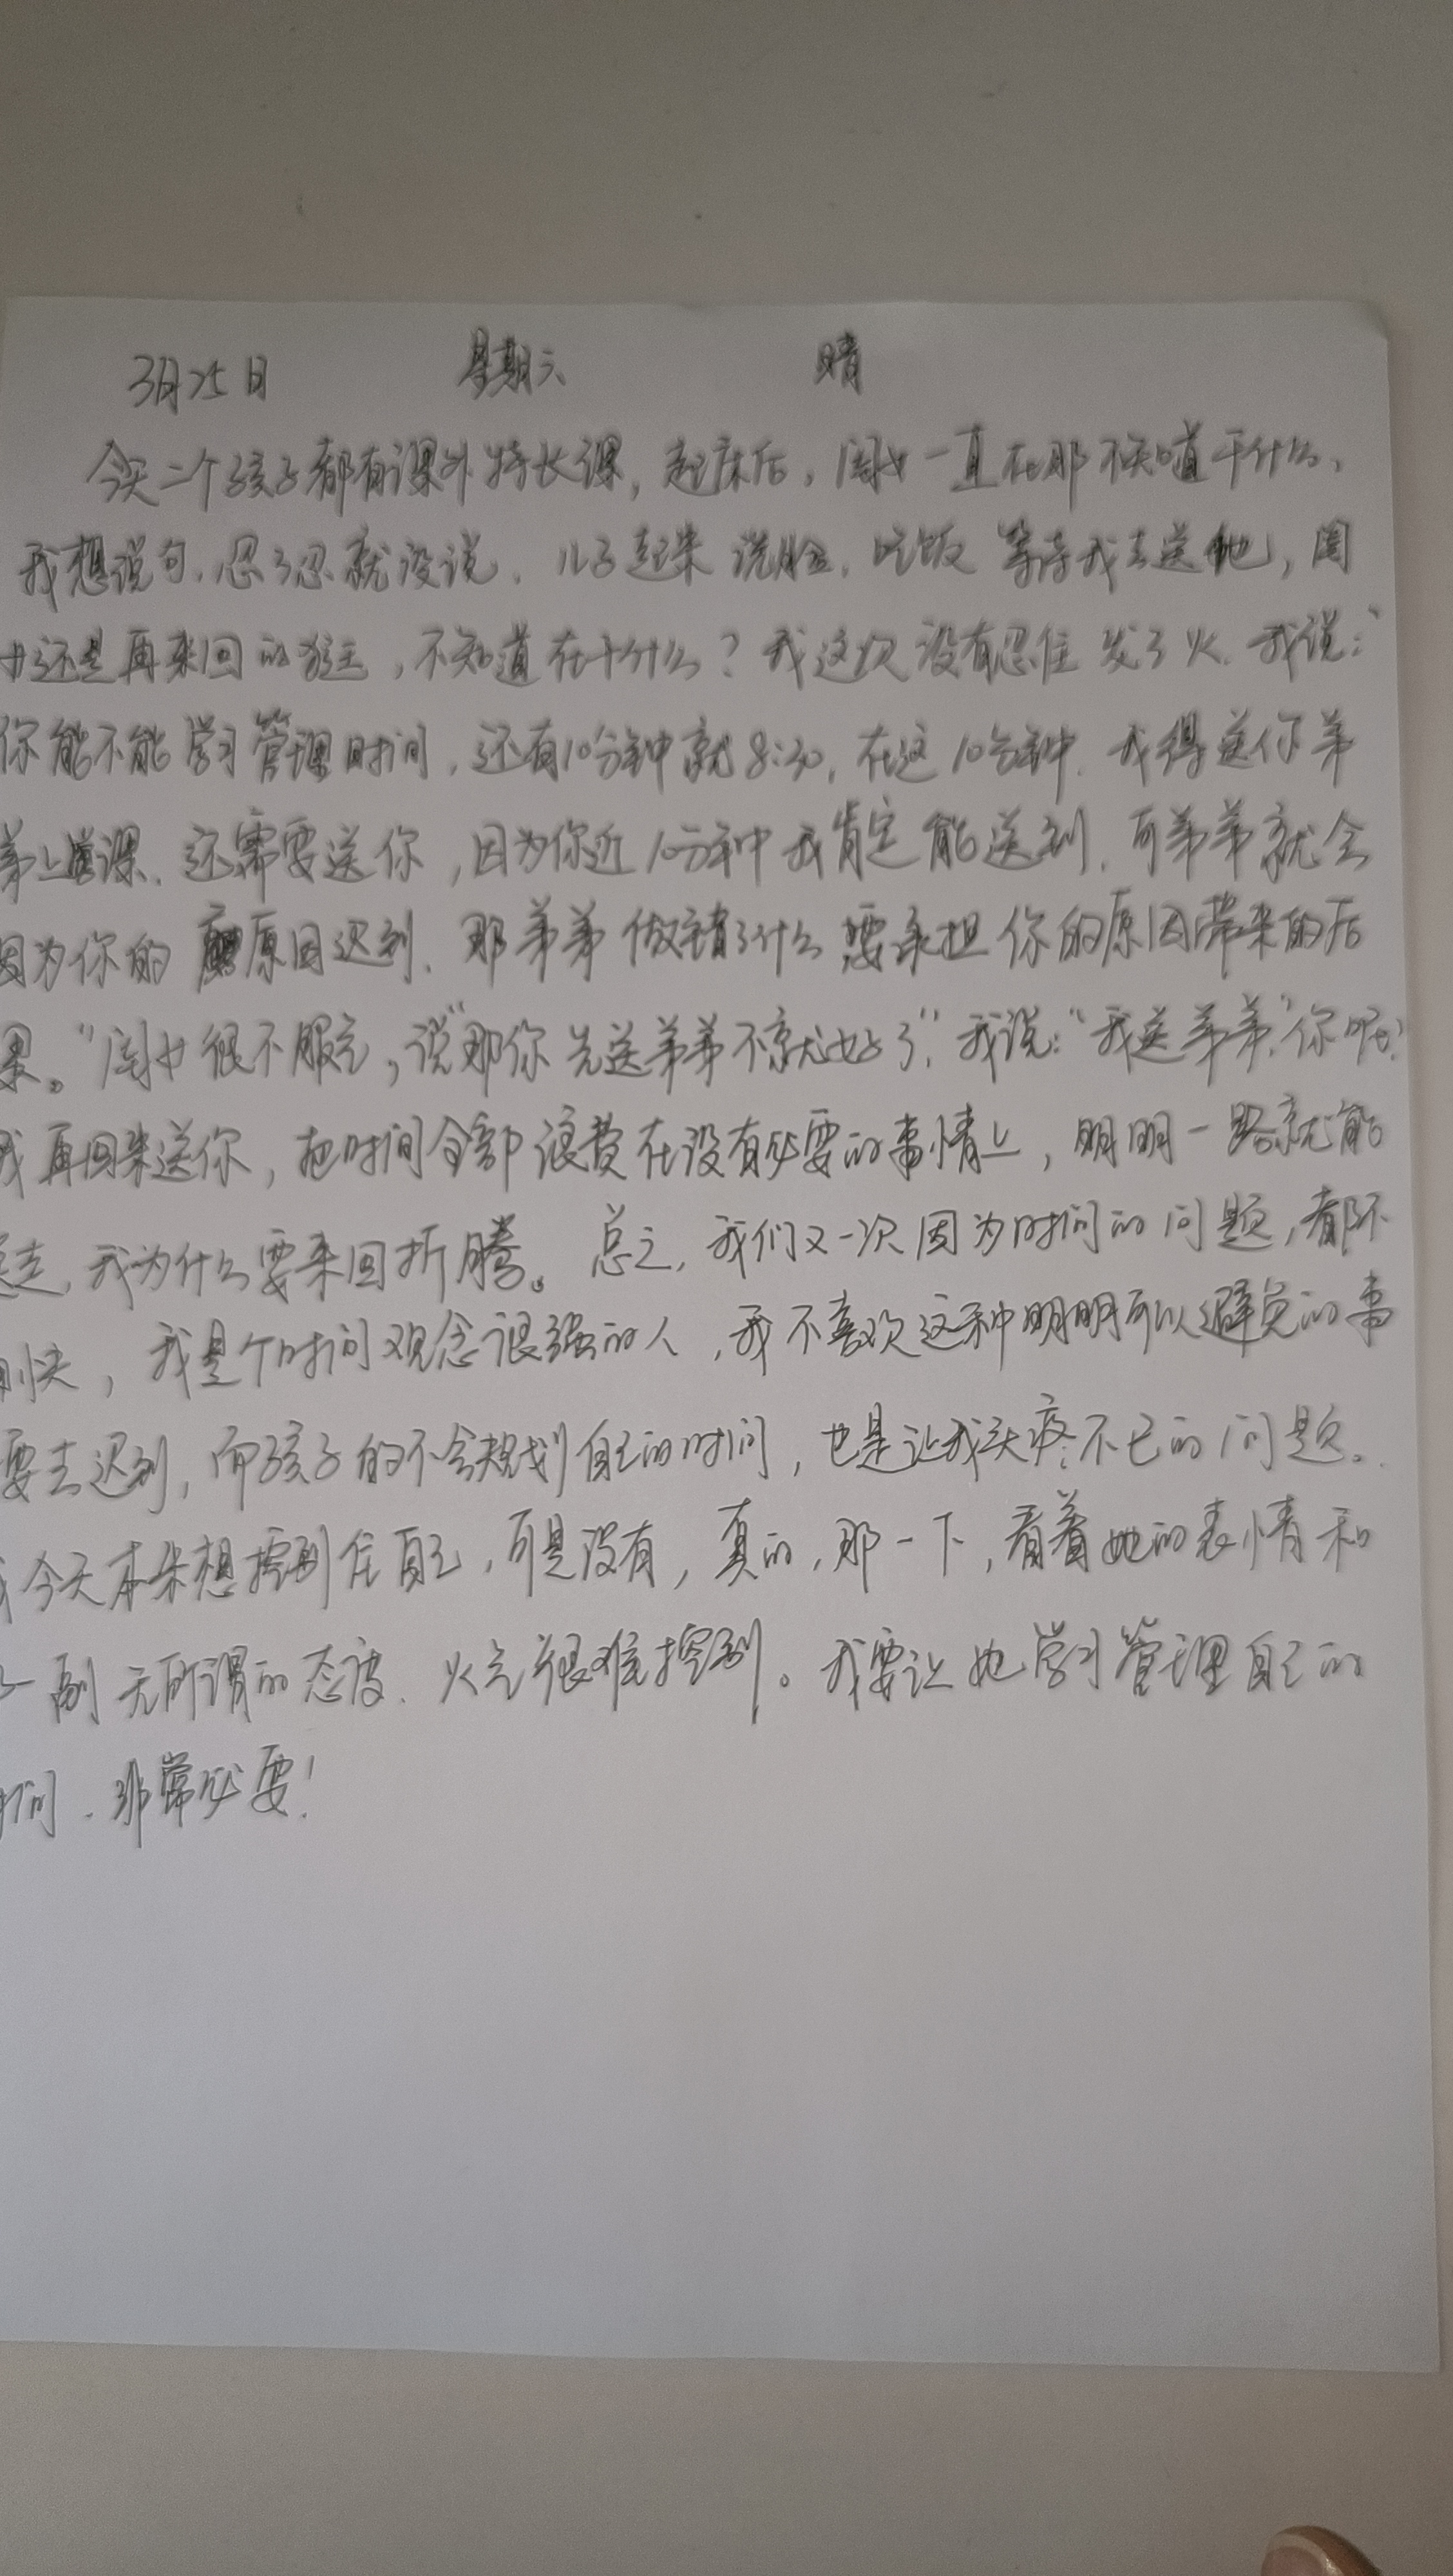 3月25日 星期六 晴
今天二个孩子都有课外特长课，起床后，闺女一直在那不知道干什么，
我想说句，忍了忍就没说，儿子起来洗脸，吃饭等待我去送他，闺
女还是再来回的，不知道在干什么？我这次没有忍住发了火，我说：“
你能不能学习管理时间，还有10分钟就8:30，在这10分钟，我得送你弟
弟上课，还需要送你，因为你近10分钟我肯定能送到，可弟弟就会
因为你的原因迟到，那弟弟做错了什么要承担你的原因带来的后
果。”闺女很不服气，说“那你先送弟弟不就好了”，我说：“我送弟弟，你呢？
我再回来送你，把时间全部浪费在没有必要的事情上，明明一路就能
送走，我为什么要来回折腾。总之，我们又一次因为时间的问题，都不
愉快，我是个时间观念很强的人，我不喜欢这种明明可以避免的事
要去迟到，而孩子的不会规划自己的时间，也是让我头疼不已的问题。
我今天本来想控制住自己，可是没有，真的，那一下，看着她的表情和
一副无所谓的态度，火气很难控制。我要让她学习管理自己的
时间，非常必要！